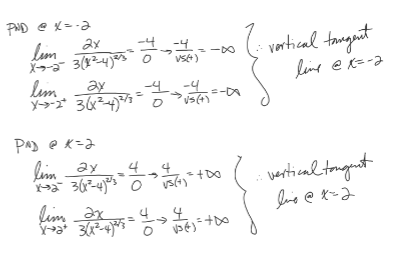 PND @ x=-2
lim x→-2⁻ 2x/3(x²-4)^2/3 = -4/0 → -4/vs(+) = -∞
lim x→-2⁺ 2x/3(x²-4)^2/3 = -4/0 → -4/vs(+) = -∞
∴ vertical tangent
line @ x=-2
PND @ x=2
lim x→2⁻ 2x/3(x²-4)^2/3 = 4/0 → 4/vs(+) = +∞
lim x→2⁺ 2x/3(x²-4)^2/3 = 4/0 → 4/vs(+) = +∞
∴ vertical tangent
line @ x=2